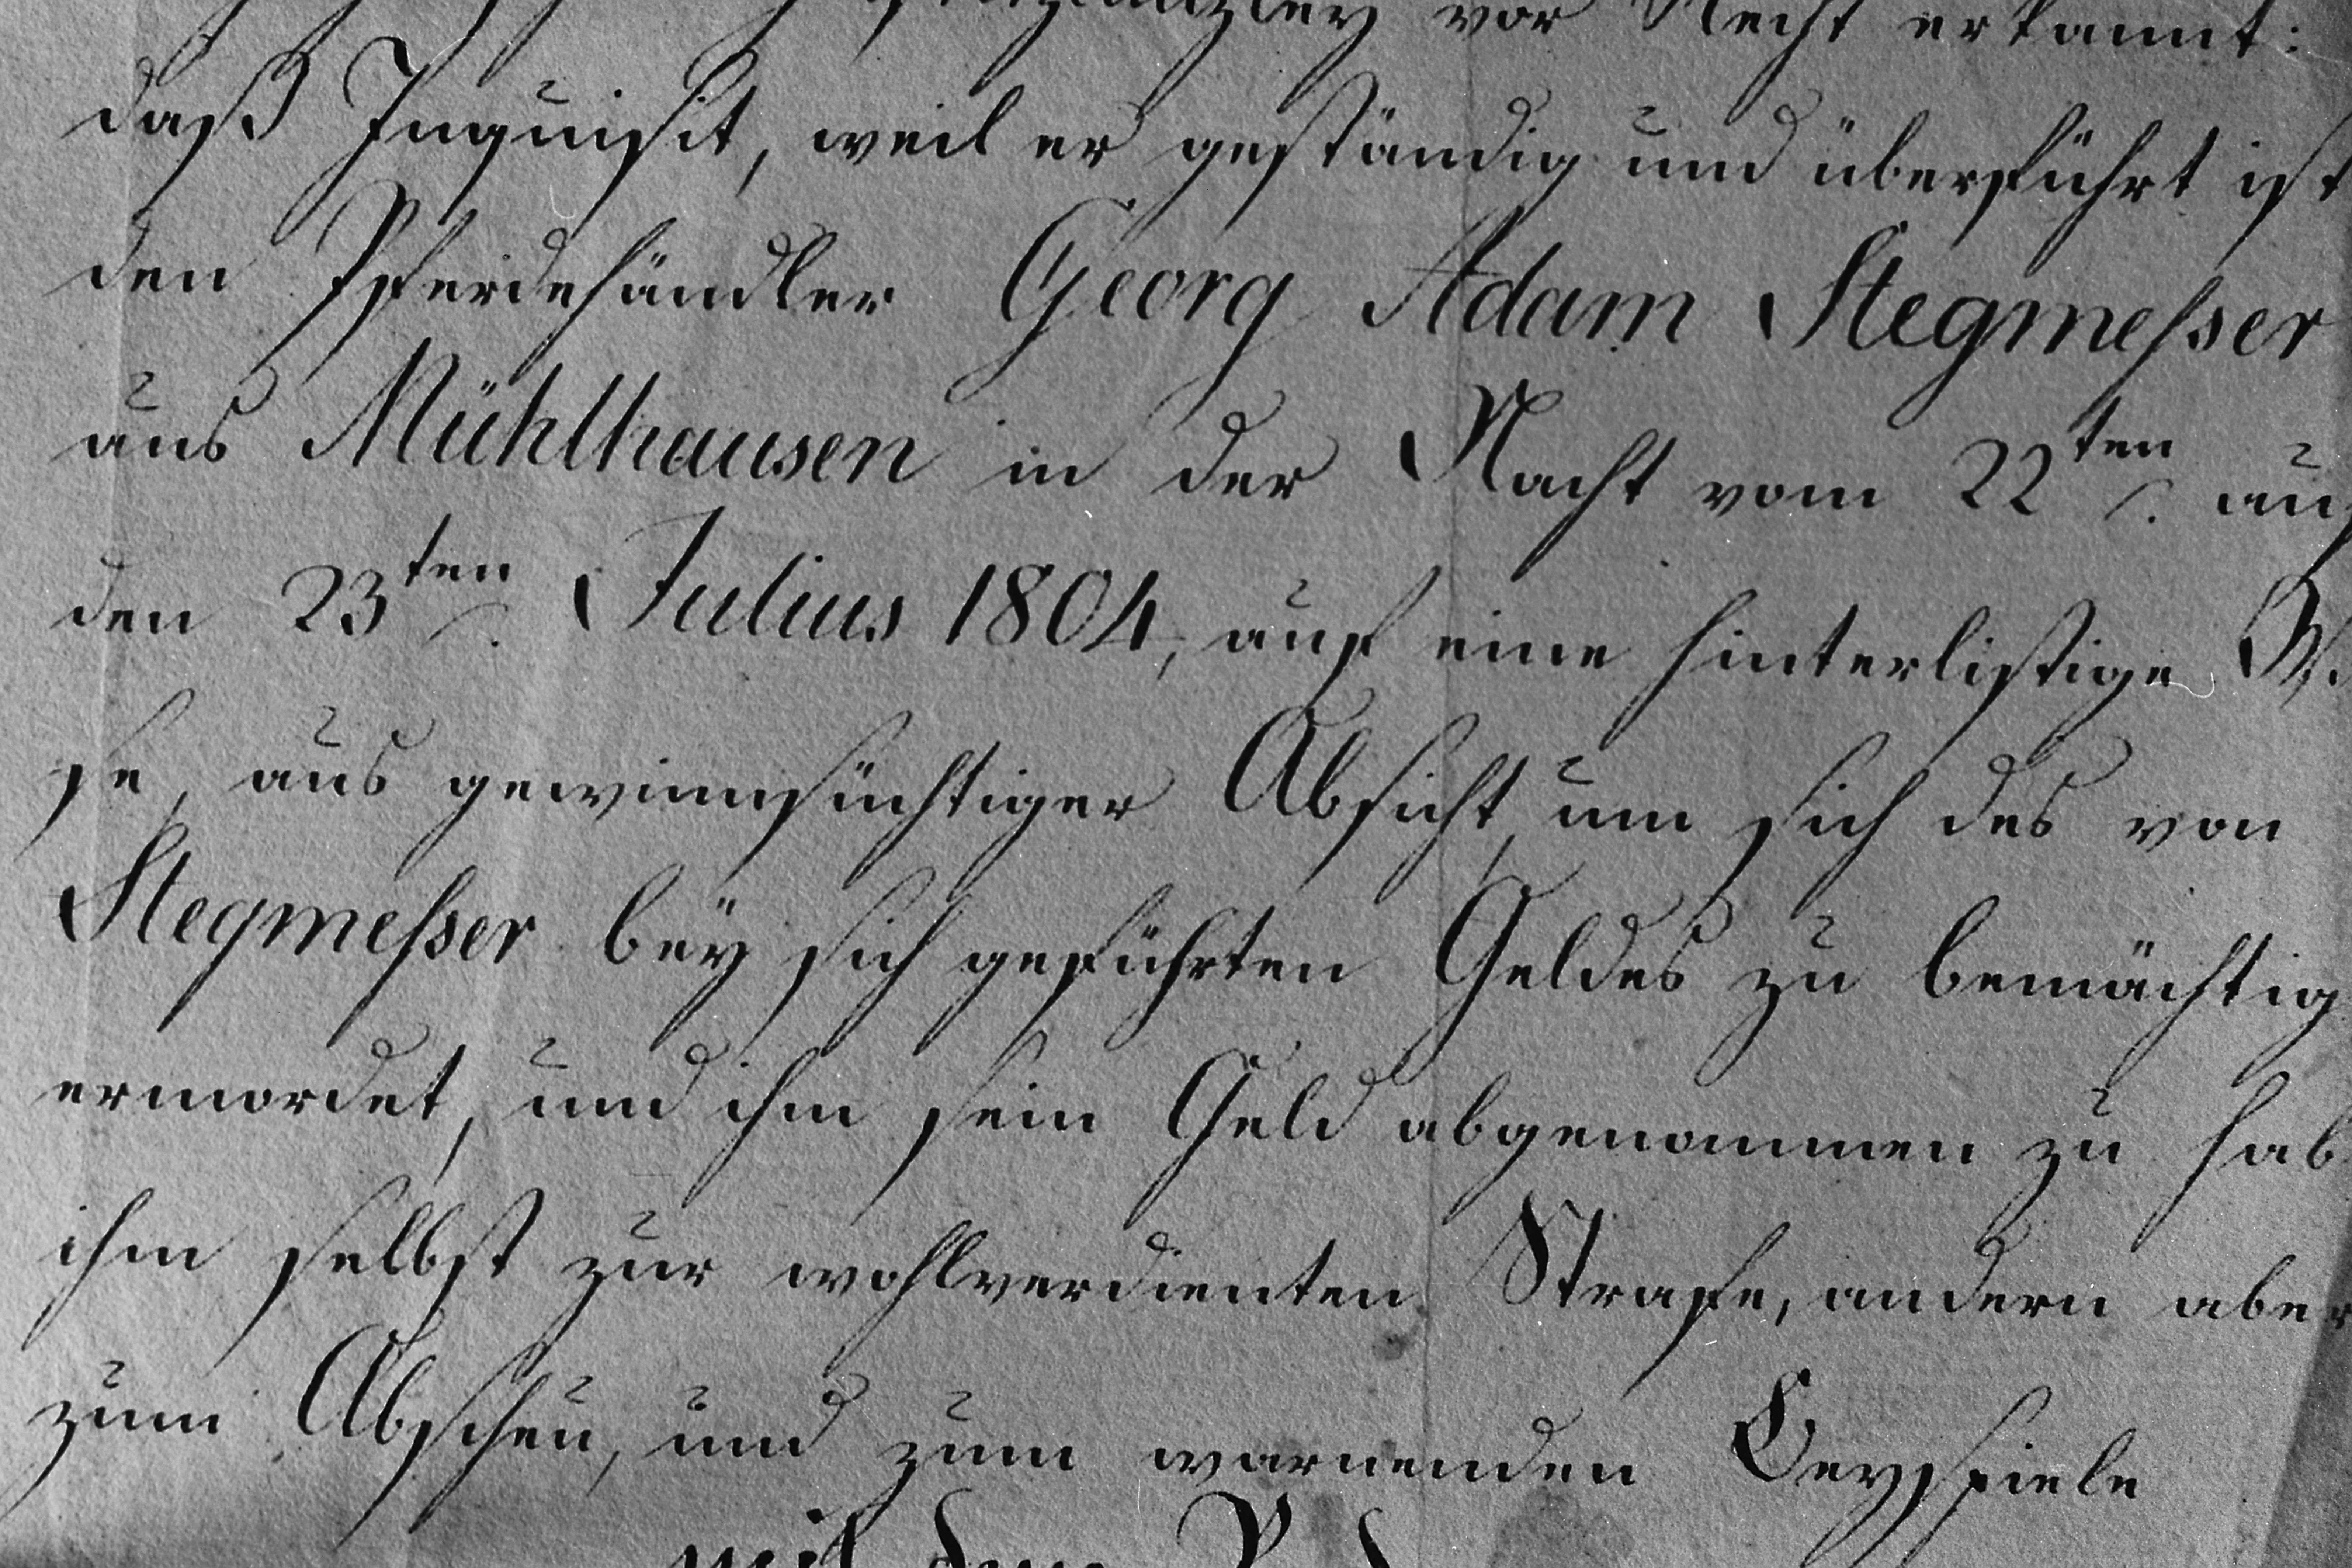 vor Recht erkannt:
daß Inquisit, weil er geständig und überführt ist
den Pferdehändler Georg Adam Stegmeſser
aus Mühlhausen in der Nacht vom 22ten auf
den 23ten Julius 1804, auf eine hinterlistige W
se, aus gewinnsüchtiger Absicht, um sich des von
Stegmeſser bey sich geführten Geldes zu bemächtig
ermordet, und ihm sein Geld abgenommen zu hab
ihm selbst zur wohlverdienten Strafe, andern aber
zum Abscheu, und zum warnenden Beyspiele
mit dem